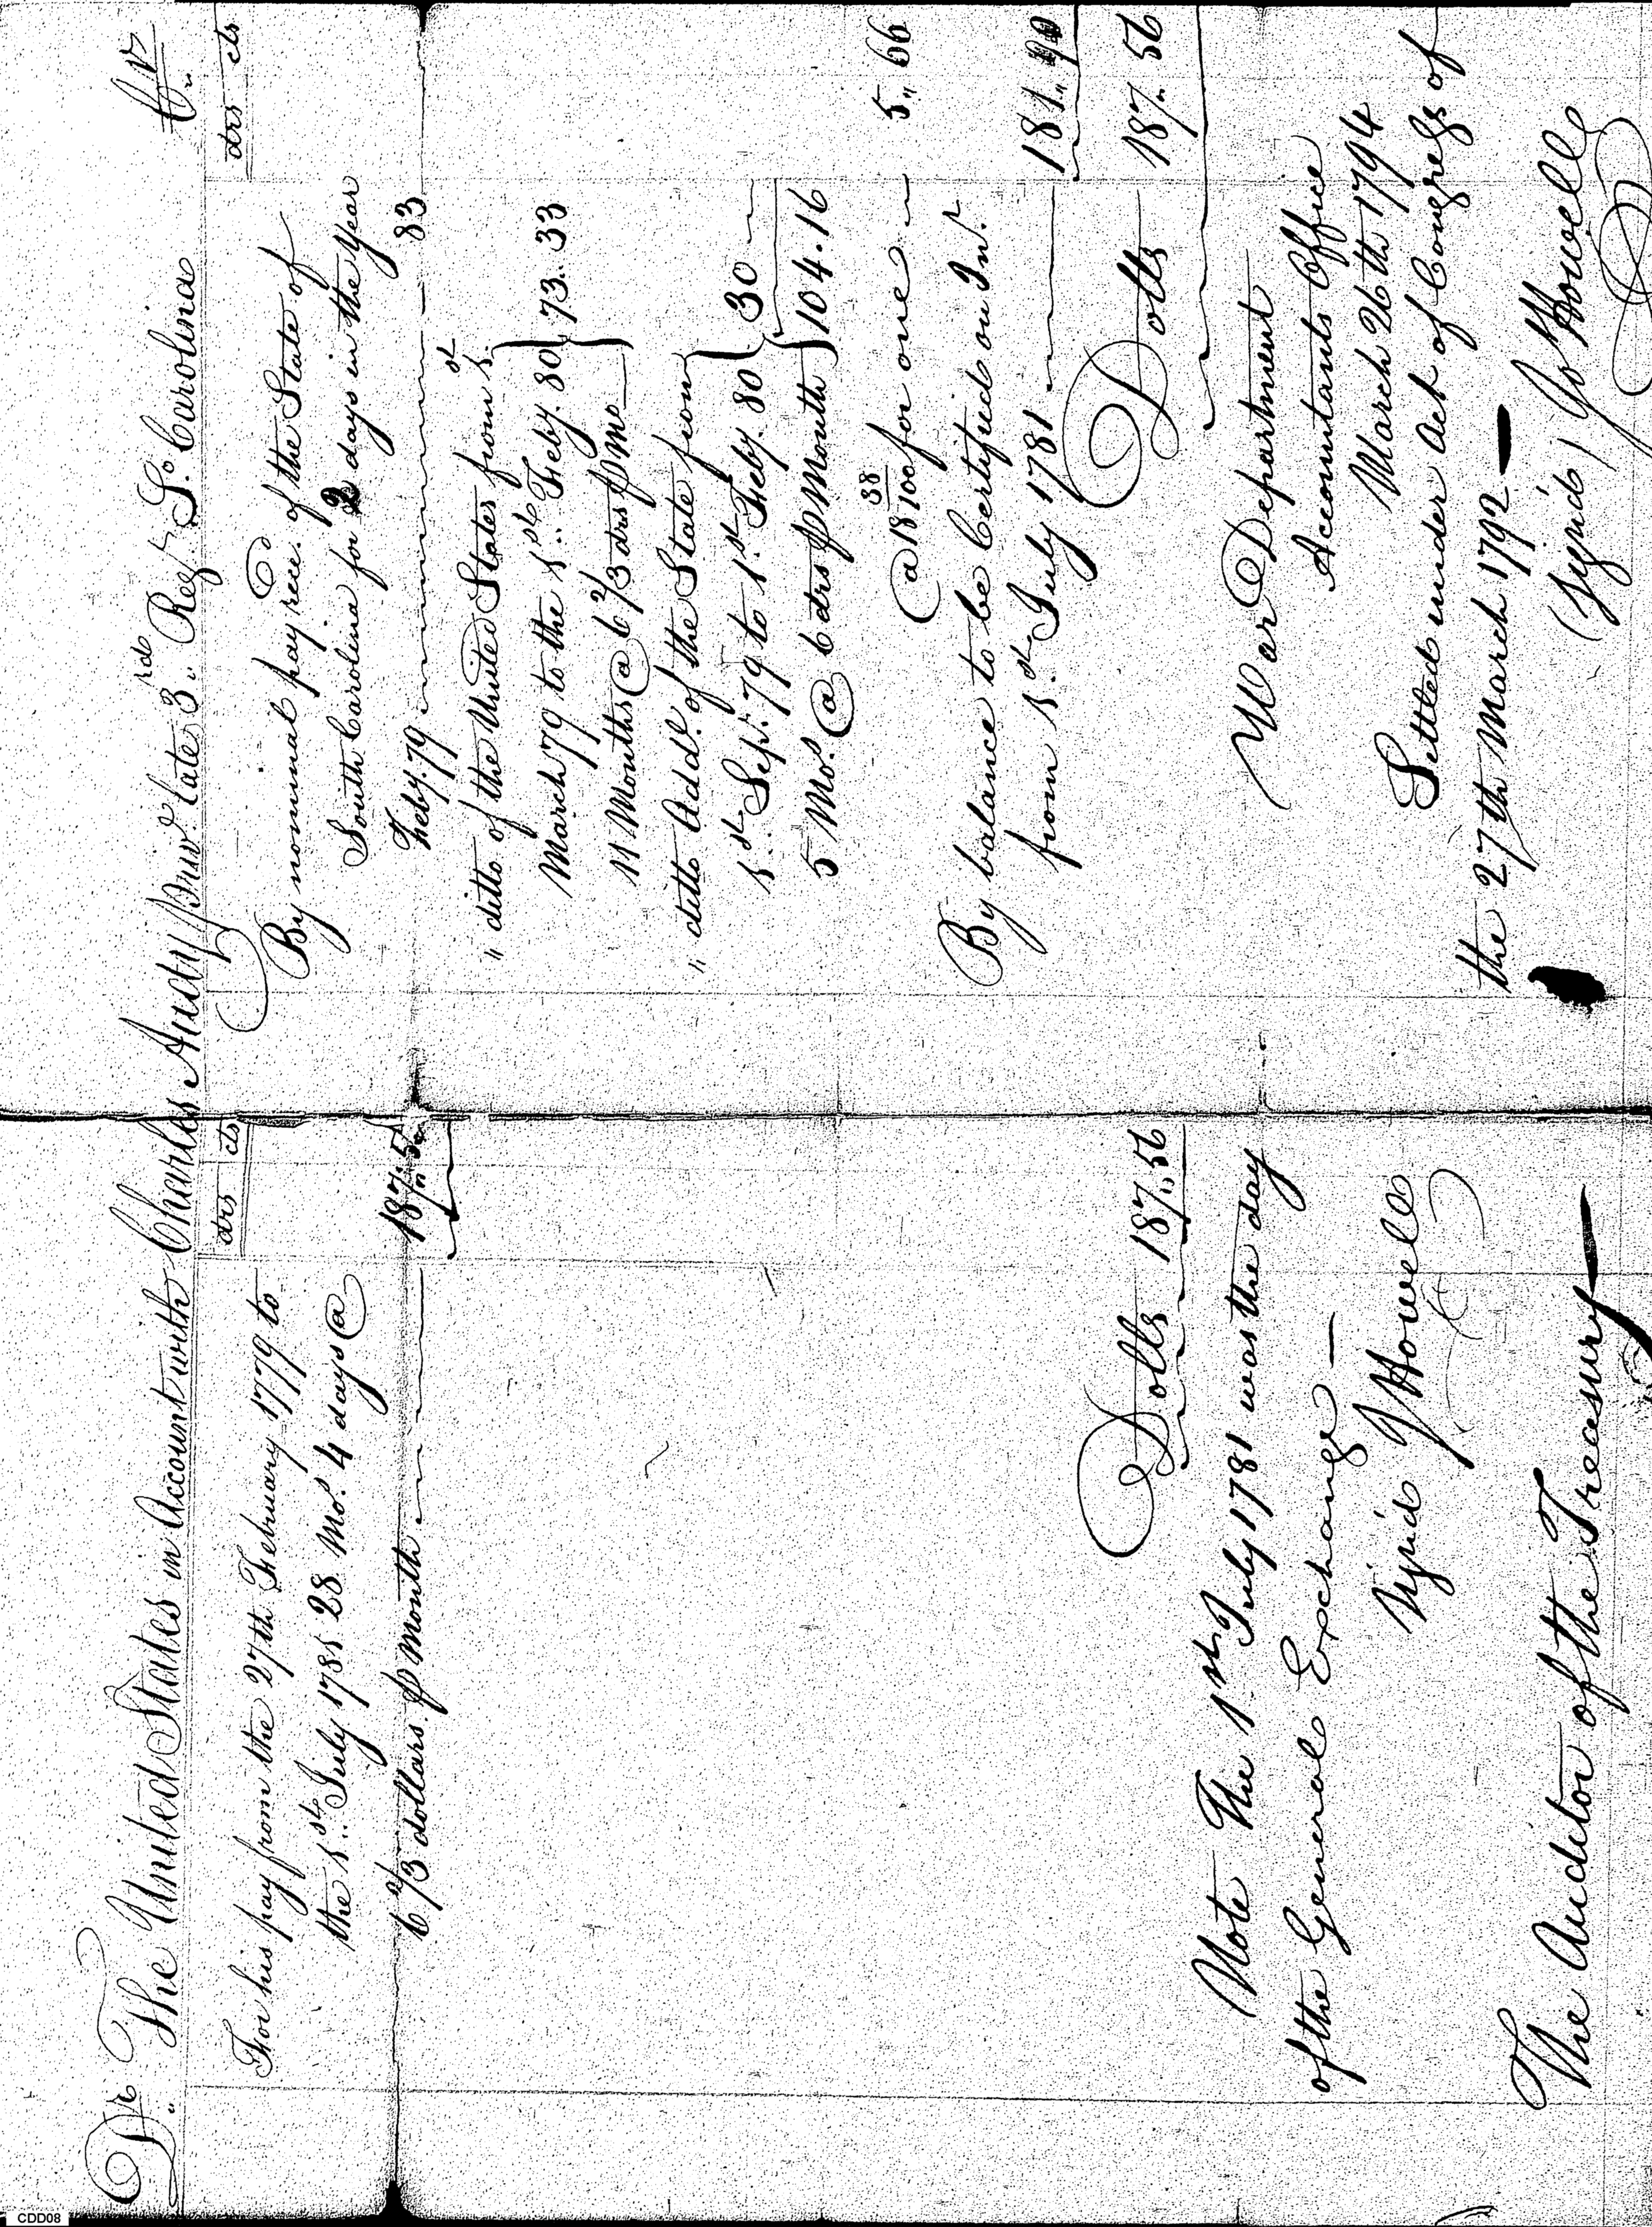 Dr. The United States in Account with Charles Audy Priv. late 3rd Regt. So. Carolina Cr.
drs cts
For his pay from the 27th February 1779 to
the 1st July 1781 28 Mos. 4 days @
6 2/3 dollars p Month 187.. 5
Dolls 187.. 56
Note The 1st July 1781 was the day
of the General Exchange —
Sign'd J Howell
The Auditor of the Treasury —
drs cts
By nominal pay rec. of the State of
South Carolina for 2 days in the Year
Feby. 79 83
" ditto of the United States from 1st
March 79 to the 1st Feby. 80 } 73.. 33
11 Months @ 6 2/3 drs p mo
" ditto Addl. of the State from
1st Sepr. 79 to 1st Feby. 80 } 30
5 Mos. @ 6 drs p Month } 104.16
@ 18 38/100 for one 5.. 66
By balance to be Certified on Int.
from 1st July 1781 181.. 90
Dolls 187.. 56
War Department
Accountants Office
March 26th 1794
Settled under Act of Congress of
the 27th March 1792 —
(sign'd) Jo Howell
CDD08